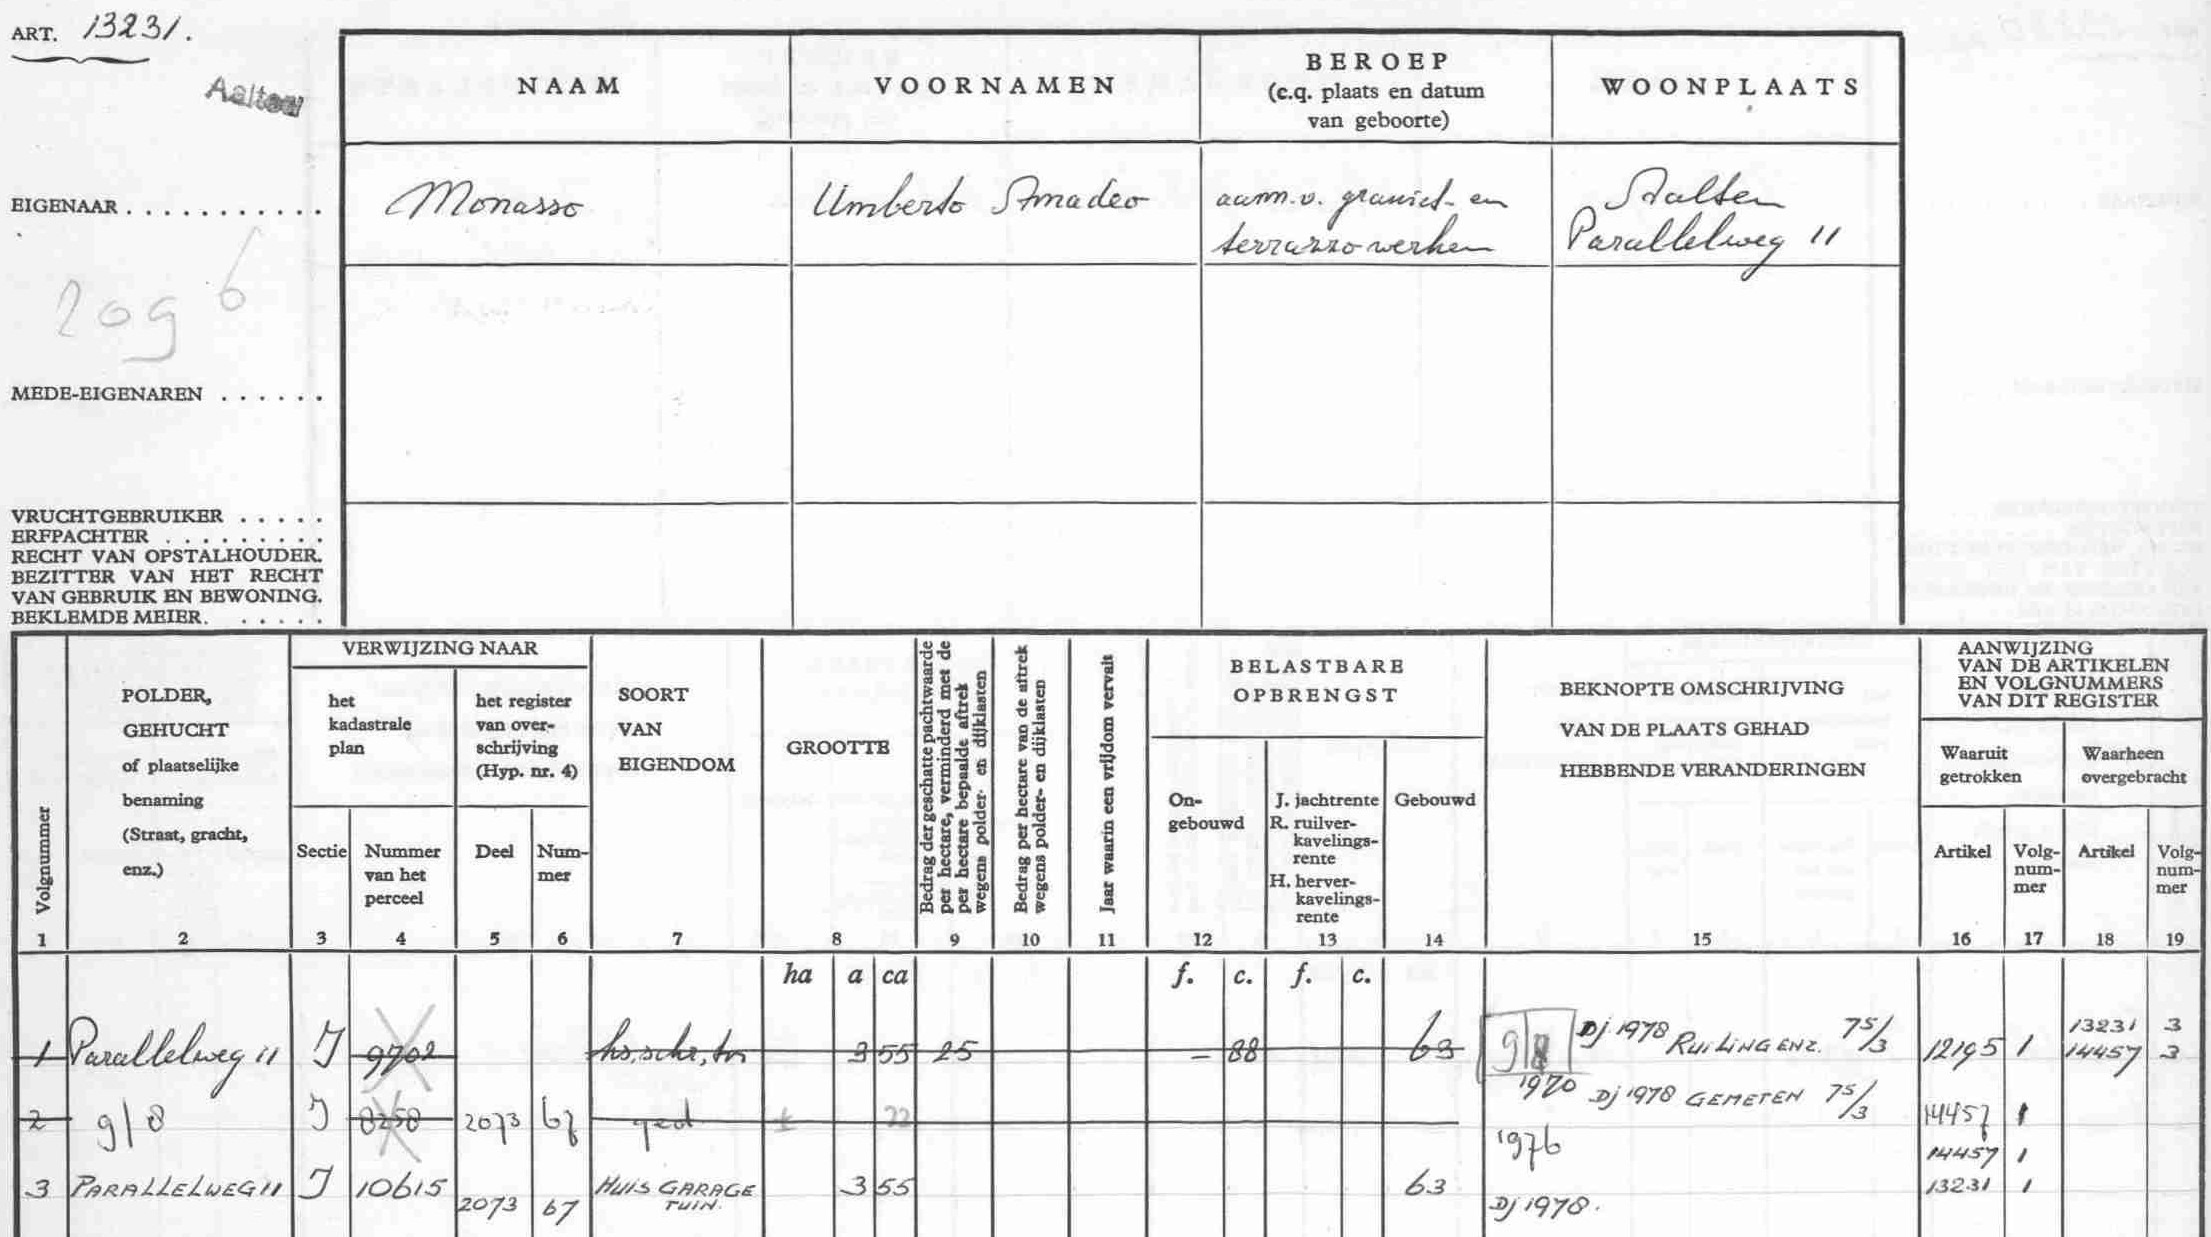 ART. 13231.
Aalten
NAAM
VOORNAMEN
BEROEP
(c.q. plaats en datum
van geboorte)
WOONPLAATS
EIGENAAR . . . . . . . . . . .
Monasso
Umberto Amadeo
aann. v. graniet- en
terrazzowerken
Aalten
Parallelweg 11
2096
MEDE-EIGENAREN . . . . . .
VRUCHTGEBRUIKER . . . . .
ERFPACHTER . . . . . . . . .
RECHT VAN OPSTALHOUDER.
BEZITTER VAN HET RECHT
VAN GEBRUIK EN BEWONING.
BEKLEMDE MEIER. . . . . .
Volgnummer
1
POLDER,
GEHUCHT
of plaatselijke
benaming
(Straat, gracht,
enz.)
2
VERWIJZING NAAR
het
kadastrale
plan
Sectie
3
Nummer
van het
perceel
4
het register
van over-
schrijving
(Hyp. nr. 4)
Deel
5
Num-
mer
6
SOORT
VAN
EIGENDOM
7
GROOTTE
8
Bedrag der geschatte pachtwaarde
per hectare, verminderd met de
per hectare bepaalde aftrek
wegens polder- en dijklasten
9
Bedrag per hectare van de aftrek
wegens polder- en dijklasten
10
Jaar waarin een vrijdom vervalt
11
BELASTBARE
OPBRENGST
On-
gebouwd
12
J. jachtrente
R. ruilver-
kavelings-
rente
H. herver-
kavelings-
rente
13
Gebouwd
14
BEKNOPTE OMSCHRIJVING
VAN DE PLAATS GEHAD
HEBBENDE VERANDERINGEN
15
AANWIJZING
VAN DE ARTIKELEN
EN VOLGNUMMERS
VAN DIT REGISTER
Waaruit
getrokken
Artikel
16
Volg-
num-
mer
17
Waarheen
overgebracht
Artikel
18
Volg-
num-
mer
19
ha a ca f. c. f. c.
1 Parallelweg 11 J 9702 hs, schr, tn 3 55 25 – 88 63 9/8 Dj 1978 RUILING ENZ. 75/3 12195 1 13231 3
14457 3
1970 Dj 1978 GEMETEN 75/3
2 9/8 J 8258 2073 67 ged 22 1976 14457 1
14457 1
3 PARALLELWEG 11 J 10615 2073 67 HUIS GARAGE 3 55 63 Dj 1978. 13231 1
TUIN.